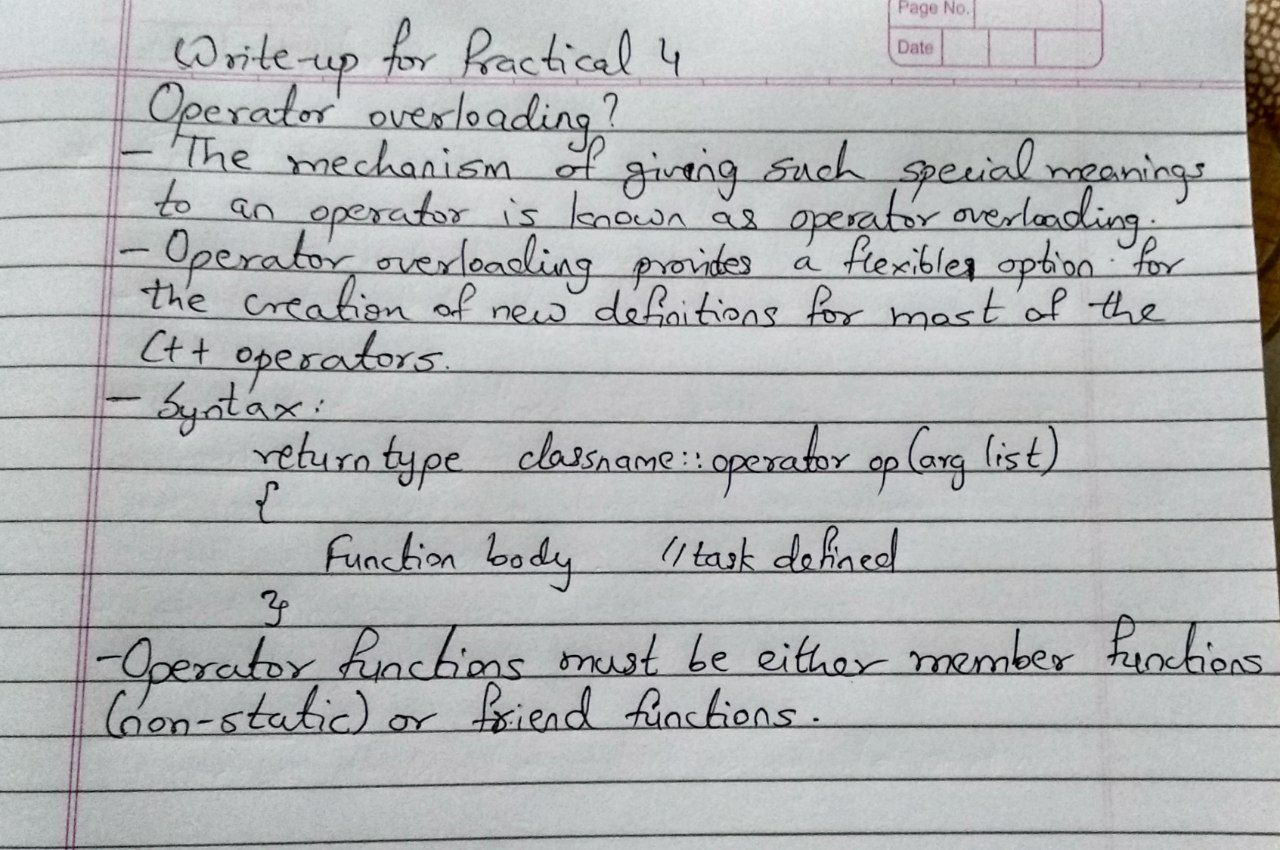 Page No.
Date
Write-up for Practical 4
Operator overloading?
- The mechanism of giving such special meanings
to an operator is known as operator overloading.
- Operator overloading provides a flexible option for
the creation of new definitions for most of the
C++ operators.
- Syntax:
return type classname::operator op(arg list)
{
Function body //task defined
}
-Operator functions must be either member functions
(non-static) or friend functions.